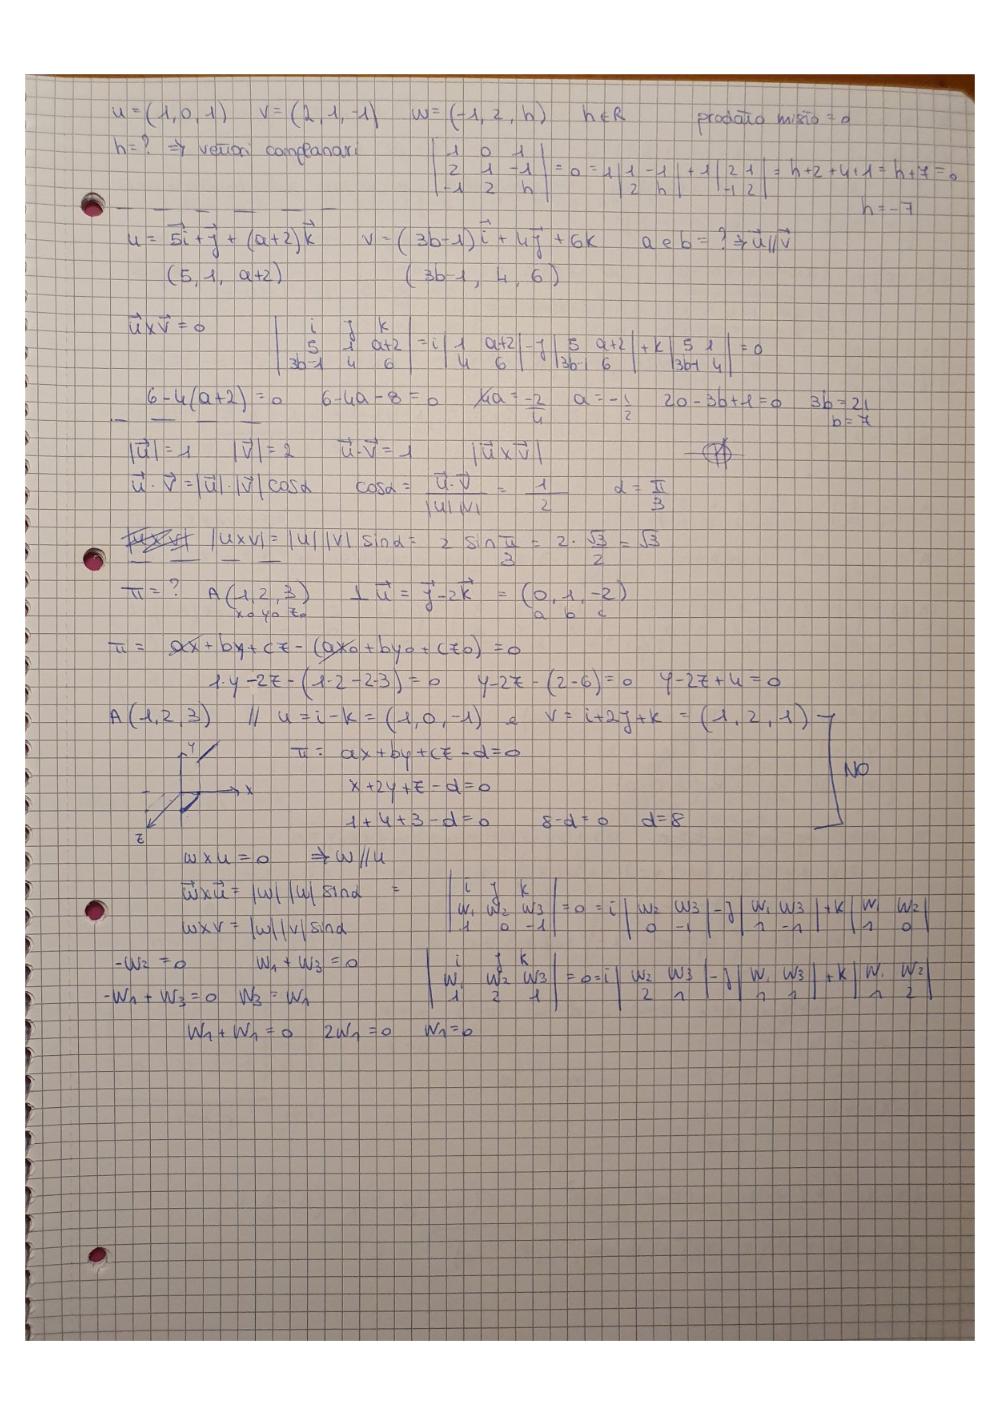 u=(1,0,1) v=(2,1,-1) w=(-1,2,h) h∈R prodotto misto=0
h=? ⇒ vettori complanari |1 0 1; 2 1 -1; -1 2 h| =0=1|1 -1; 2 h| +1|2 1; -1 2| = h+2+4+1=h+7=0
h=-7
u=5i⃗+j⃗+(a+2)k⃗ v=(3b-1)i⃗+4j⃗+6k a e b=? ⇒ u⃗//v⃗
(5,1,a+2) (3b-1,4,6)
u⃗×v⃗=0 |i j k; 5 1 a+2; 3b-1 4 6| =i|1 a+2; 4 6| -j|5 a+2; 3b-1 6| +k|5 1; 3b-1 4| =0
6-4(a+2)=0 6-4a-8=0 4a=-2/4 a=-1/2 20-3b+1=0 3b=21
b=7
|u⃗|=1 |v⃗|=2 u⃗·v⃗=1 |u⃗×v⃗|
u⃗·v⃗=|u⃗|·|v⃗|cosα cosα= u⃗·v⃗/|u||v| = 1/2 α=π/3
|u×v| |u×v|=|u||v|sinα= 2 sin π/3 = 2·√3/2=√3
π=? A(1,2,3) ⊥ u⃗=j⃗-2k⃗ =(0,1,-2)
x0 y0 z0 a b c
π= ax+by+cz-(ax0+by0+cz0)=0
1·y-2z-(1·2-2·3)=0 y-2z-(2-6)=0 y-2z+4=0
A(1,2,3) // u=i-k=(1,0,-1) e v=i+2j+k=(1,2,1)
y π= ax+by+cz-d=0
x x+2y+z-d=0 NO
z 1+4+3-d=0 8-d=0 d=8
w×u=0 ⇒ w//u
w⃗×u⃗=|w||u|sinα = |i j k; w1 w2 w3; 1 0 -1| =0=i|w2 w3; 0 -1| -j|w1 w3; 1 -1| +k|w1 w2; 1 0|
w×v=|w||v|sinα
-w2=0 w1+w3=0 |i j k; w1 w2 w3; 1 2 1| =0=i|w2 w3; 2 1| -j|w1 w3; 1 1| +k|w1 w2; 1 2|
-w1+w3=0 w3=w1
w1+w1=0 2w1=0 w1=0